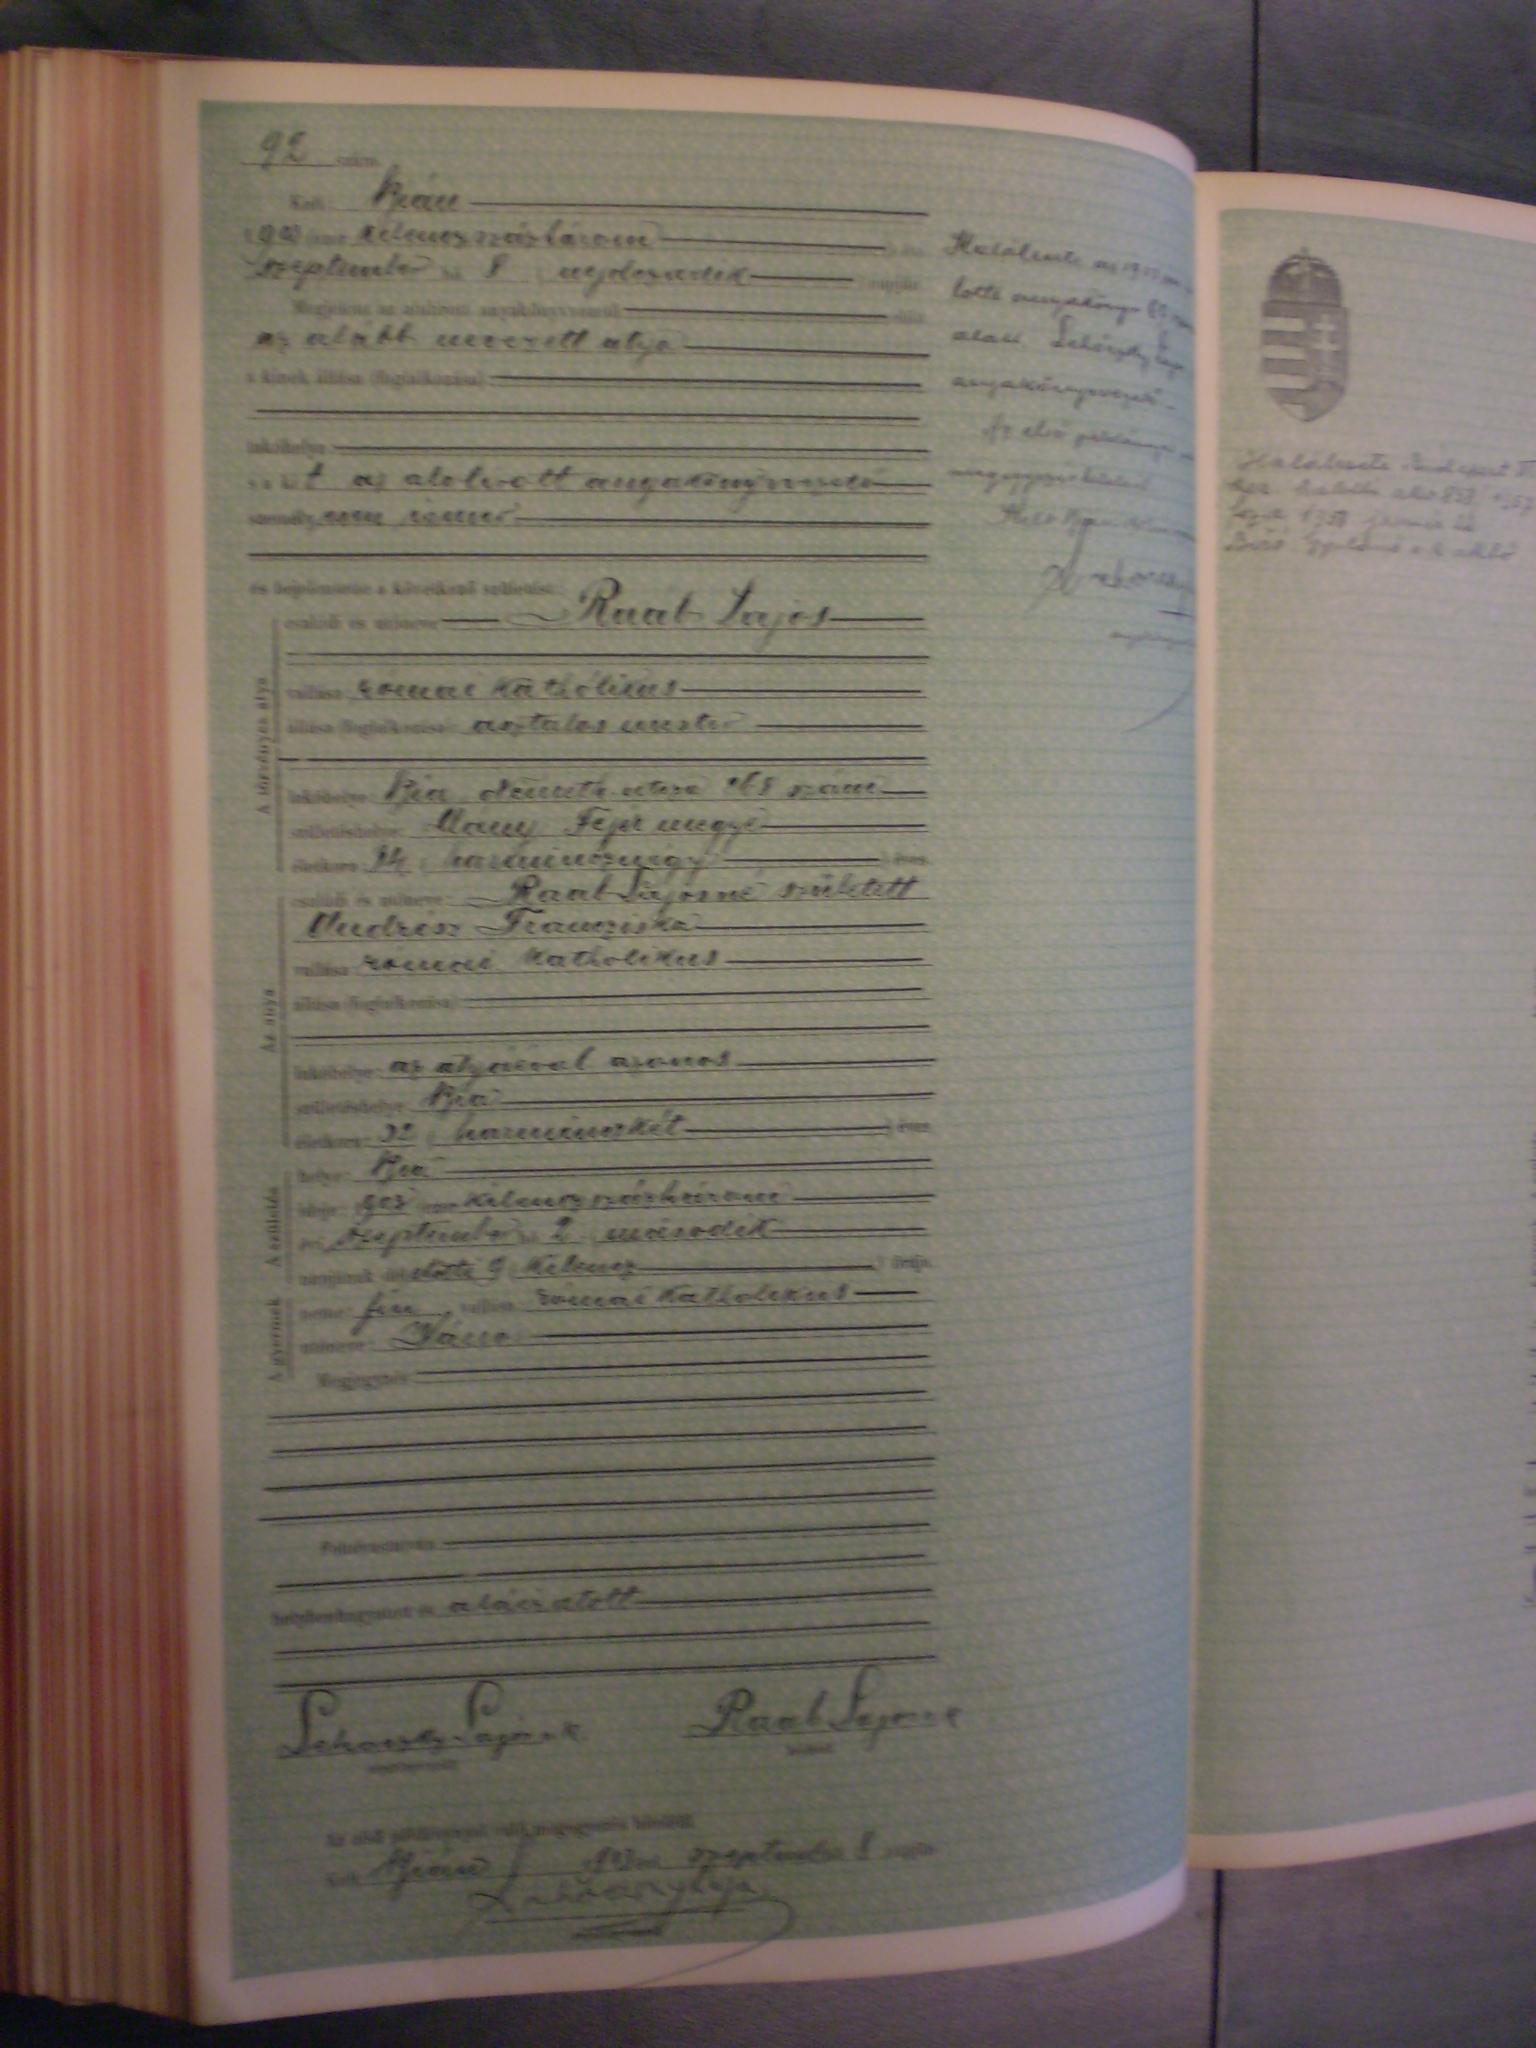 92 szám.
Kelt Bián
1903 (ezer kilencszázhárom) évi
szeptember hó 8 (nyolczadik) napján.
Megjelent az alulirott anyakönyvvezető előtt
az alább nevezett atya
a kinek állása (foglalkozása)
lakóhelye
s a kit az alólirott anyakönyvvezető
személyesen ismer
és bejelentette a következő születést:
családi és utóneve Raab Lajos
vallása: római katholikus
állása (foglalkozása): asztalos mester
A törvényes atya
lakóhelye: Bia, Németh utcza 268 szám
születéshelye: Mány Fejér megyei
életkora: 34 (harmincznégy) éves
családi és utóneve: Raab Lajosné született
Franciska
vallása: római katholikus
állása (foglalkozása)
Az anya
lakóhelye: az atyáéval azonos
születéshelye: Bia
életkora: 32 (harminczkét) éves
A születés
helye: Bia
ideje: 1903 ezer kilenczszázhárom
évi szeptember hó 2 (második
napjának délelőtti 9 (kilencz) órája.
A gyermek
neme: fiú, vallása: római katholikus
utóneve: János
Megjegyzés:
Felolvastatván,
helybenhagyatott és aláiratott
Raab Lajos
anyakönyvvezető
bejelentő
Az első példánnyal való megegyezés hiteléül.
Kelt Bián 1903 évi szeptember 8 napján
anyakönyvvezető
Halálesete az
lotti anyakönyv
alatt
anyakönyvvezető
Az első példánnyal
megegyezés hiteléül
Halálesete Budapest